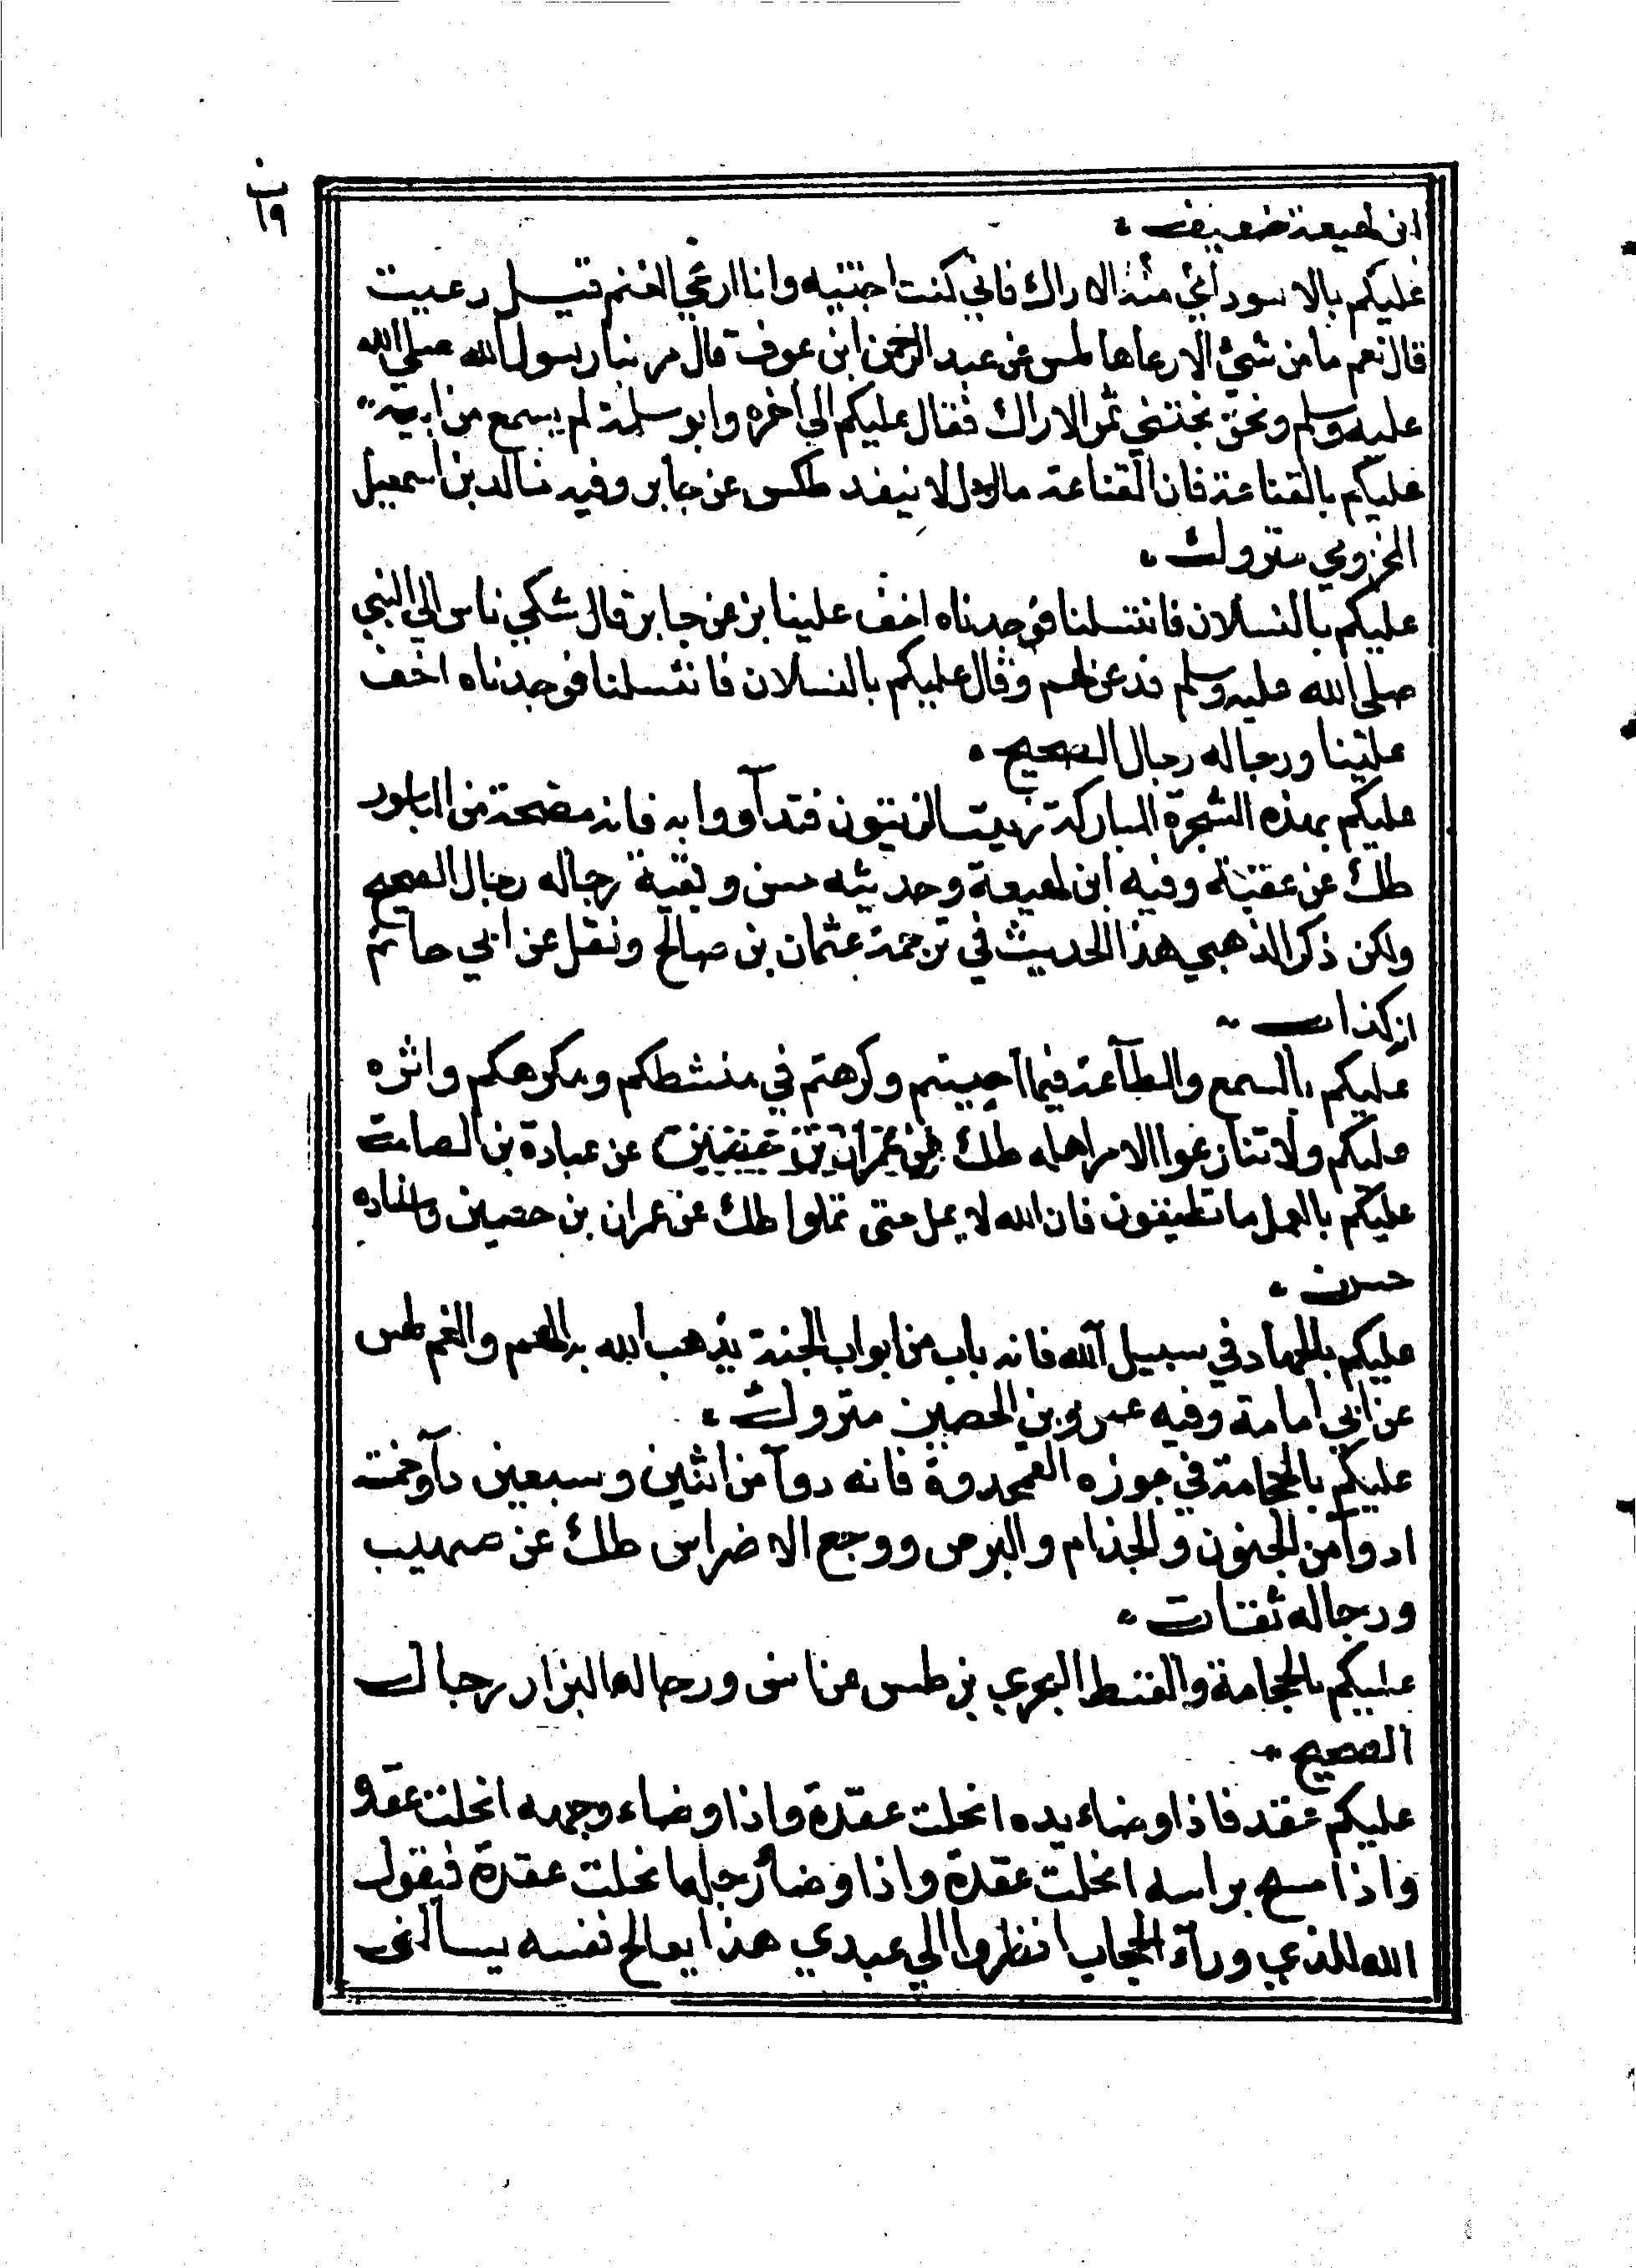 ب
١٩
ابن لهيعة ضعيف
عليكم بالاسود اعني منه الاراك فاني كنت اجتنيه وانا ارعي الغنم قيل رعيت
قال نعم ما من شيئ الا رعاها طس عن عبد الرحمن ابن عوف قال مر بنا رسول الله صلي الله
عليه وسلم ونحن نجتني ثمر الاراك فقال عليكم الي اخره وابو سلمة لم يسمع من ابيه
عليكم بالقناعة فان القناعة مال لا ينفد طكس عن جابر وفيه خالد بن اسمعيل
المخزومي متروك
عليكم بالنسلان فانتسلنا فوجدناه اخف علينا بز عن جابر قال شكي ناس الي النبي
صلي الله عليه وسلم فدعي لهم وقال عليكم بالنسلان فانتسلنا فوجدناه اخف
علينا ورجاله رجال الصحيح
عليكم بهذه الشجرة المباركة زيت الزيتون فتدآووا به فانه مصحة من الباسور
طك عن عقبة وفيه ابن لهيعة وحديثه حسن وبقية رجاله رجال الصحيح
ولكن ذكر الذهبي هذا الحديث في ترجمة عثمان بن صالح ونقل عن ابي حاتم
انه كذاب
عليكم بالسمع والطآعة فيما احببتم وكرهتم في منشطكم ومكرهكم واثره
عليكم ولا تنازعوا الامر اهله طك عن عبادة بن الصامت
عليكم بالعمل ما تطيقون فان الله لا يمل حتى تملوا طك عن عمران بن حصين واسناده
حسن
عليكم بالجهاد في سبيل آلله فانه باب من ابواب الجنة يذهب الله به الهم والغم طس
عن ابي امامة وفيه عمرو بن الحصين متروك
عليكم بالحجامة في جوزه القمحدوة فانه دوآ من اثنين وسبعين دآ وخمسة
ادوآ من الجنون والجذام والبرص ووجع الاضراس طك عن صهيب
ورجاله ثقات
عليكم بالحجامة والقسط البحري بز طس عن انس ورجاله البزار رجال
الصحيح
عليكم عقد فاذا وضاء يده انحلت عقدة واذا وضاء وجهه انحلت عقدة
واذا مسح براسه انحلت عقدة واذا وضأ رجله انحلت عقدة فيقول
الله للذي ورآء الحجاب انظروا الي عبدي هذا يعالج نفسه يسألني